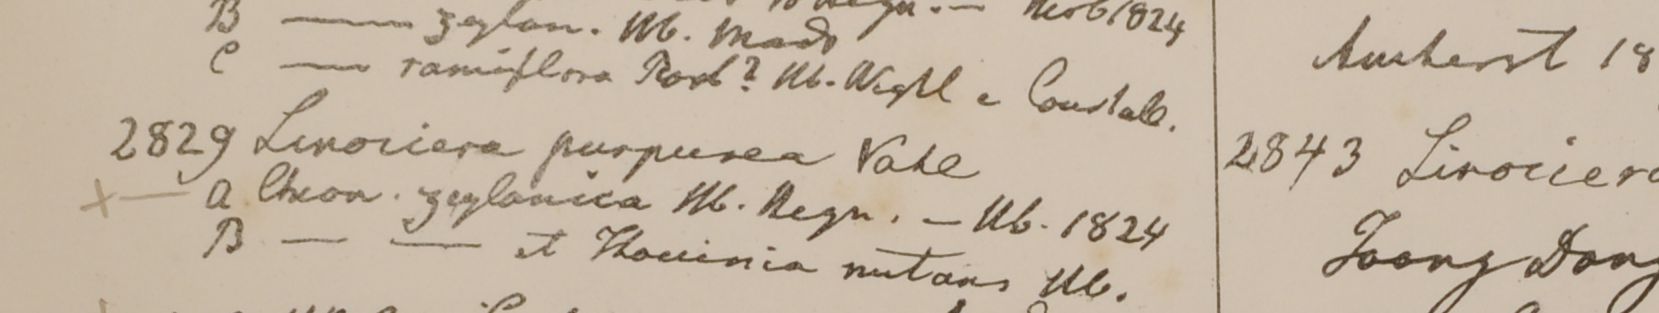 B —— zeylan. Hb. Mads
C —— ramiflora Roxb? Hb. Wight e
2829 Linociera purpurea Vahl
+ — a Chion. zeylanica Hb. Heyn. — Hb. 1824
B — — et Thouinia nutans Hb.
Amherst 18
2843 Linociera
Toong Dong